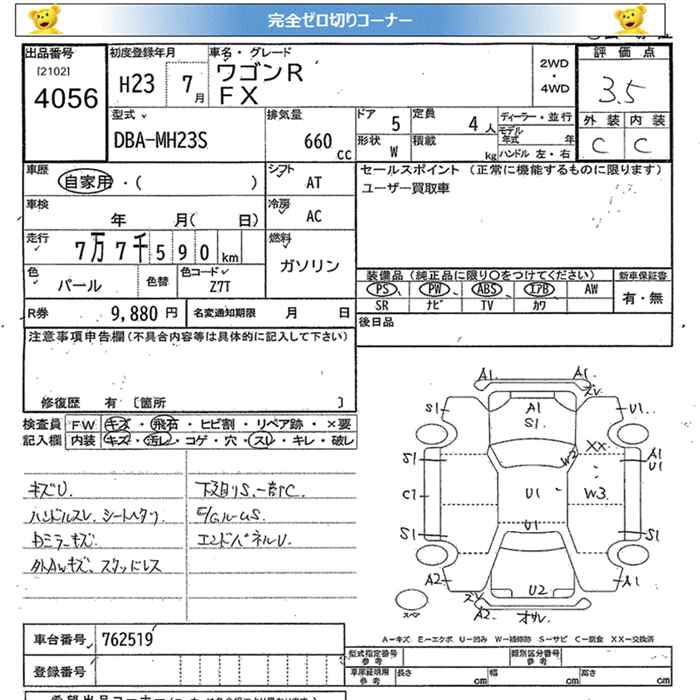 完全ゼロ切りコーナー
出品番号 [2102] 4056
初度登録年月 H23 7月
車名・グレード ワゴンR FX
2WD ・ 4WD
評価点 3.5
外装 内装
C C
型式 DBA-MH23S
排気量 660 CC
ドア 5 定員 4人
形状 W 積載 kg
ディーラー・並行
モデル年式 年
ハンドル 左・右
車歴 自家用・( )
シフト AT
セールスポイント (正常に機能するものに限ります)
ユーザー買取車
車検 年 月( 日)
冷房 AC
走行 7万7千590km
燃料 ガソリン
色 パール 色替 色コード Z7T
装備品 (純正品に限り○をつけてください) 新車保証書
PS PW ABS エアB AW 有・無
SR ナビ TV カワ
R券 9,880円 名変通知期限 月 日
後日品
注意事項申告欄(不具合内容等は具体的に記入して下さい)
修復歴 有 [箇所 ]
検査員 FW キズ・飛石・ヒビ割・リペア跡・×要
記入欄 内装 キズ・汚レ・コゲ・穴・スレ・キレ・破レ
キズU.
ハンドルスレ、シートヘタリ
ルミラーキズ
外AWキズ、スタッドレス
下廻りS、一部C.
エンドパネルU
A1. A1.
S1 A1 S1. U1.
W2 XX
S1 A1 U1
C1 U1 W3
S1 U1 S1
A2 U2 A1
スペア A2 オサレ
A－キズ E－エクボ U－凹み W－補修跡 S－サビ C－腐食 XX－交換済
車台番号 762519
型式指定番号 参考 類別区分番号 参考
登録番号
車庫証明用 参考 長さ cm 幅 cm 高さ cm